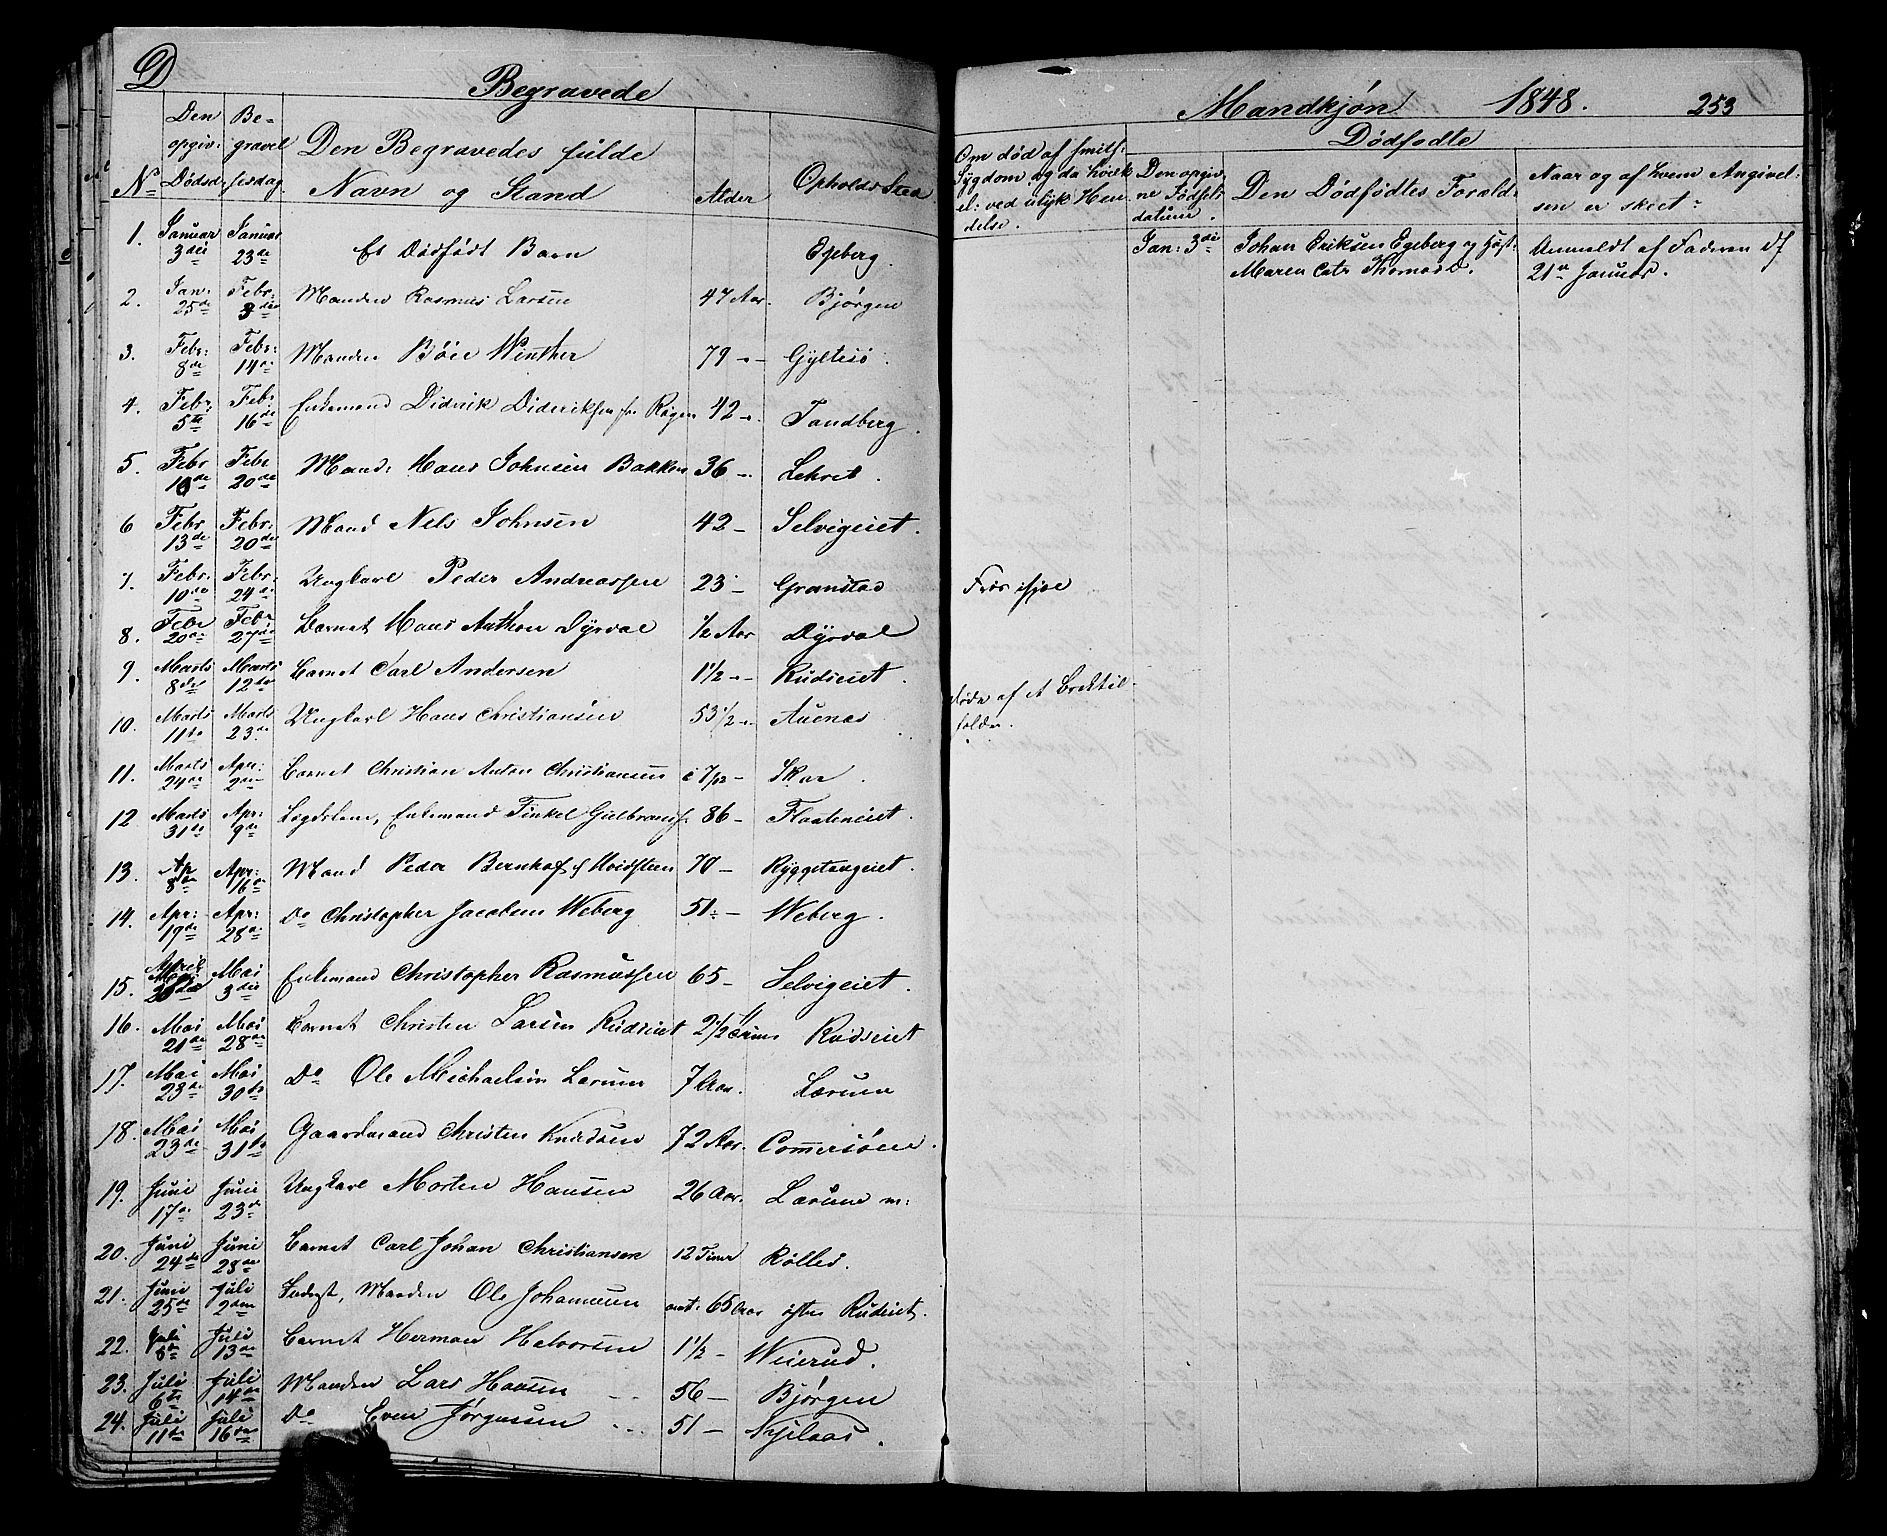 D
Begravede
Mandkjøn 1848. 253
No
Den opgiv: Dødsd:
Be- gravel sesdag
Den Begravedes fulde
Navn og Stand
Alder
Opholds Sted
Om død af smits:
Sygdom, og da hvilk
el: ved ulyk Hen
delse.
Dødfødte
Den opgiv-
ne Fødsels
datum.
Den Dødfødtes Foræld:
Naar og af hvem Angivel-
sen er skeet:
1. Januar 3die Januar 23de Et Dødfødt Barn Egeberg. Jan: 3die Johan Eriksen Egeberg og Hust: Anmeldt af Faderen d
Maren Catr Thomasd. 21de Januar.
2. Jan: 25de Febr: 3die Manden Rasmus Larsen 47 Aar. Bjørgen
3. Febr: 8de Febr: 14de Manden Bøie Winther 79 -- Gyltesø
4. Febr: 5te Febr: 16de Enkemand Didrik Dideriksen fra Røgen 42 -- Tandberg.
5. Febr 10de Febr 20de Mand: Hans Johnsen Bakken 36 -- Lekret.
6 Febr 13de Febr: 20de Mand Nels Johnsen 42 - Selvigeiet.
7. Febr. 10de Febr. 24de Ungkarl Peder Andreassen 23 - Granstad Frøs ihjæl
8. Febr 20de Febr 27de Barnet Hans Anthon Dyrdal 1/2 Aar Dyrdal
9. Marts 8de Marts 12te Barnet Carl Andersen 1 1/2 -- Rudseiet.
10. Marts 11te Marts 23de Ungkarl Hans Christiansen 53 1/2 -- Auenæs Døde af et
11. Marts 24de Apr: 2den Barnet Christian Anton Christiansen 7/12 - Skar.
12 Marts 31te Apr: 9de Lægdslem, Enkemand Tinkel Gulbrands: 86 - Flaateneiet.
13. Ap 8de Apr: 16de Mand Peder Bernhof Hvidsteen 70 - Ryggetangeiet.
14. Apr: 19de Apr: 28de Do Christopher Jacobsen Weberg 51 - Weberg.
15. April 26de Mai 3die Enkemand Christopher Rasmussen 65 - Selvigeiet.
16. Mai 21de Mai 28de Barnet Christen Larsen Rudseiet 2 1/2 Rudseiet
17. Mai 23de Mai 30te Do Ole Michaelsen Lærum 7 Aar. Lærum
18. Mai 23de Mai 31te Gaardmand Christen Knudsen 72 Aar. Commersøen.
19. Juni 17de Juni 23de Ungkarl Morten Hansen 26 Aar. Lærum m:
20. Juni 24de Juni 28de Barnet Carl Johan Christiansen 12 Timer Kølled.
21. Juni 25de Juli 2den Inderst, Manden Ole Johannesen omt: 65 Aar østre Rudeiet.
22. Juli 8de Juli 13de Barnet Herman Halvorsen 1 1/2 - Weierud.
23. Juli 6te Juli 14de Manden Lars Hansen 56 - Bjørgen
24. Juli 11te Juli 16de Do Even Jørgensen 51 - Nyelaas.